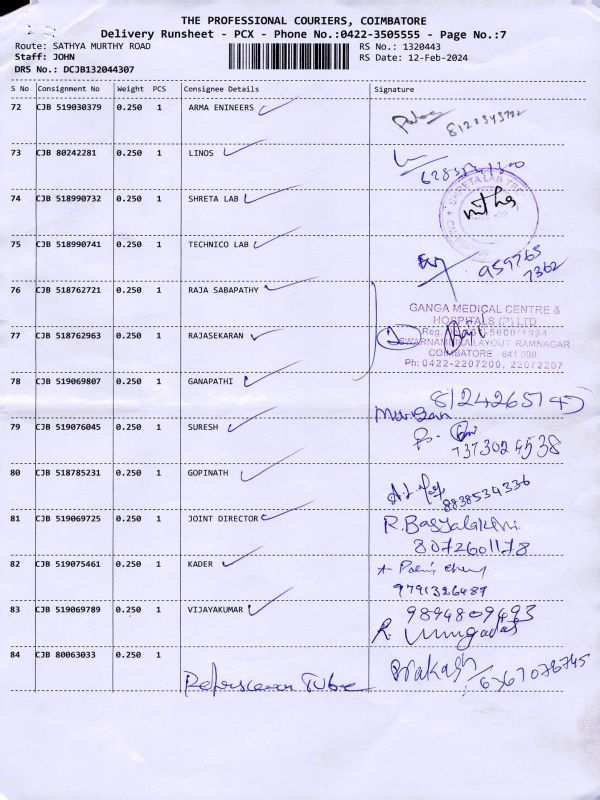 THE PROFESSIONAL COURIERS, COIMBATORE
Delivery Runsheet - PCX - Phone No.:0422-3505555 - Page No.:7
Route: SATHYA MURTHY ROAD
RS No.: 1320443
Staff: JOHN
RS Date: 12-Feb-2024
DRS No.: DCJB132044307
S No Consignment No Weight PCS Consignee Details Signature
72 CJB 519030379 0.250 1 ARMA ENINEERS
73 CJB 80242281 0.250 1 LINOS
74 CJB 518990732 0.250 1 SHRETA LAB
SHRETA LAB
75 CJB 518990741 0.250 1 TECHNICO LAB
959765
7362
76 CJB 518762721 0.250 1 RAJA SABAPATHY
GANGA MEDICAL CENTRE &
HOSPITALS (P) LTD
77 CJB 518762963 0.250 1 RAJASEKARAN
LAYOUT RAMNAGAR
COIMBATORE - 641 009
Ph: 0422-2207200, 22072207
78 CJB 519069807 0.250 1 GANAPATHI
8124265145
Murugan
79 CJB 519076045 0.250 1 SURESH
7373024538
80 CJB 518785231 0.250 1 GOPINATH
8838534336
81 CJB 519069725 0.250 1 JOINT DIRECTOR
8072601178
82 CJB 519075461 0.250 1 KADER
9791326489
83 CJB 519069789 0.250 1 VIJAYAKUMAR
9894809493
84 CJB 80063033 0.250 1
Prakash
6367078745